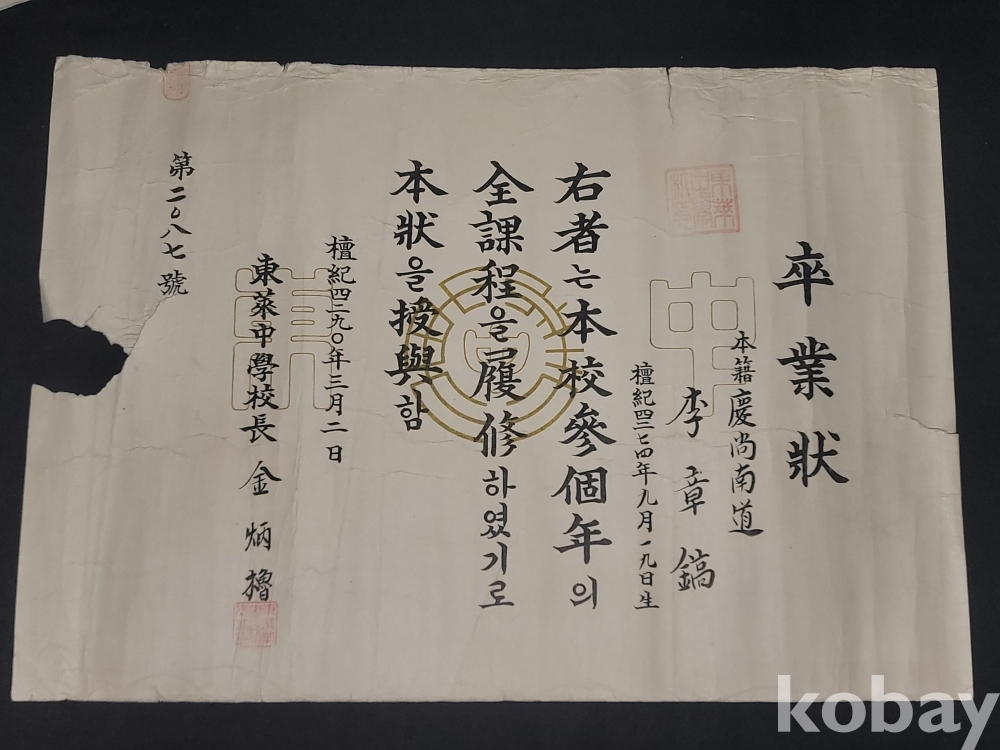 卒業狀
本籍 慶尚南道
李章鎬
檀紀四二七四年九月一九日生
右者는本校參個年의
全課程을履修하였기로
本狀을授與함
檀紀四二九〇年三月二日
東萊中學校長 金炳
第二〇八七號
中
東
kobay